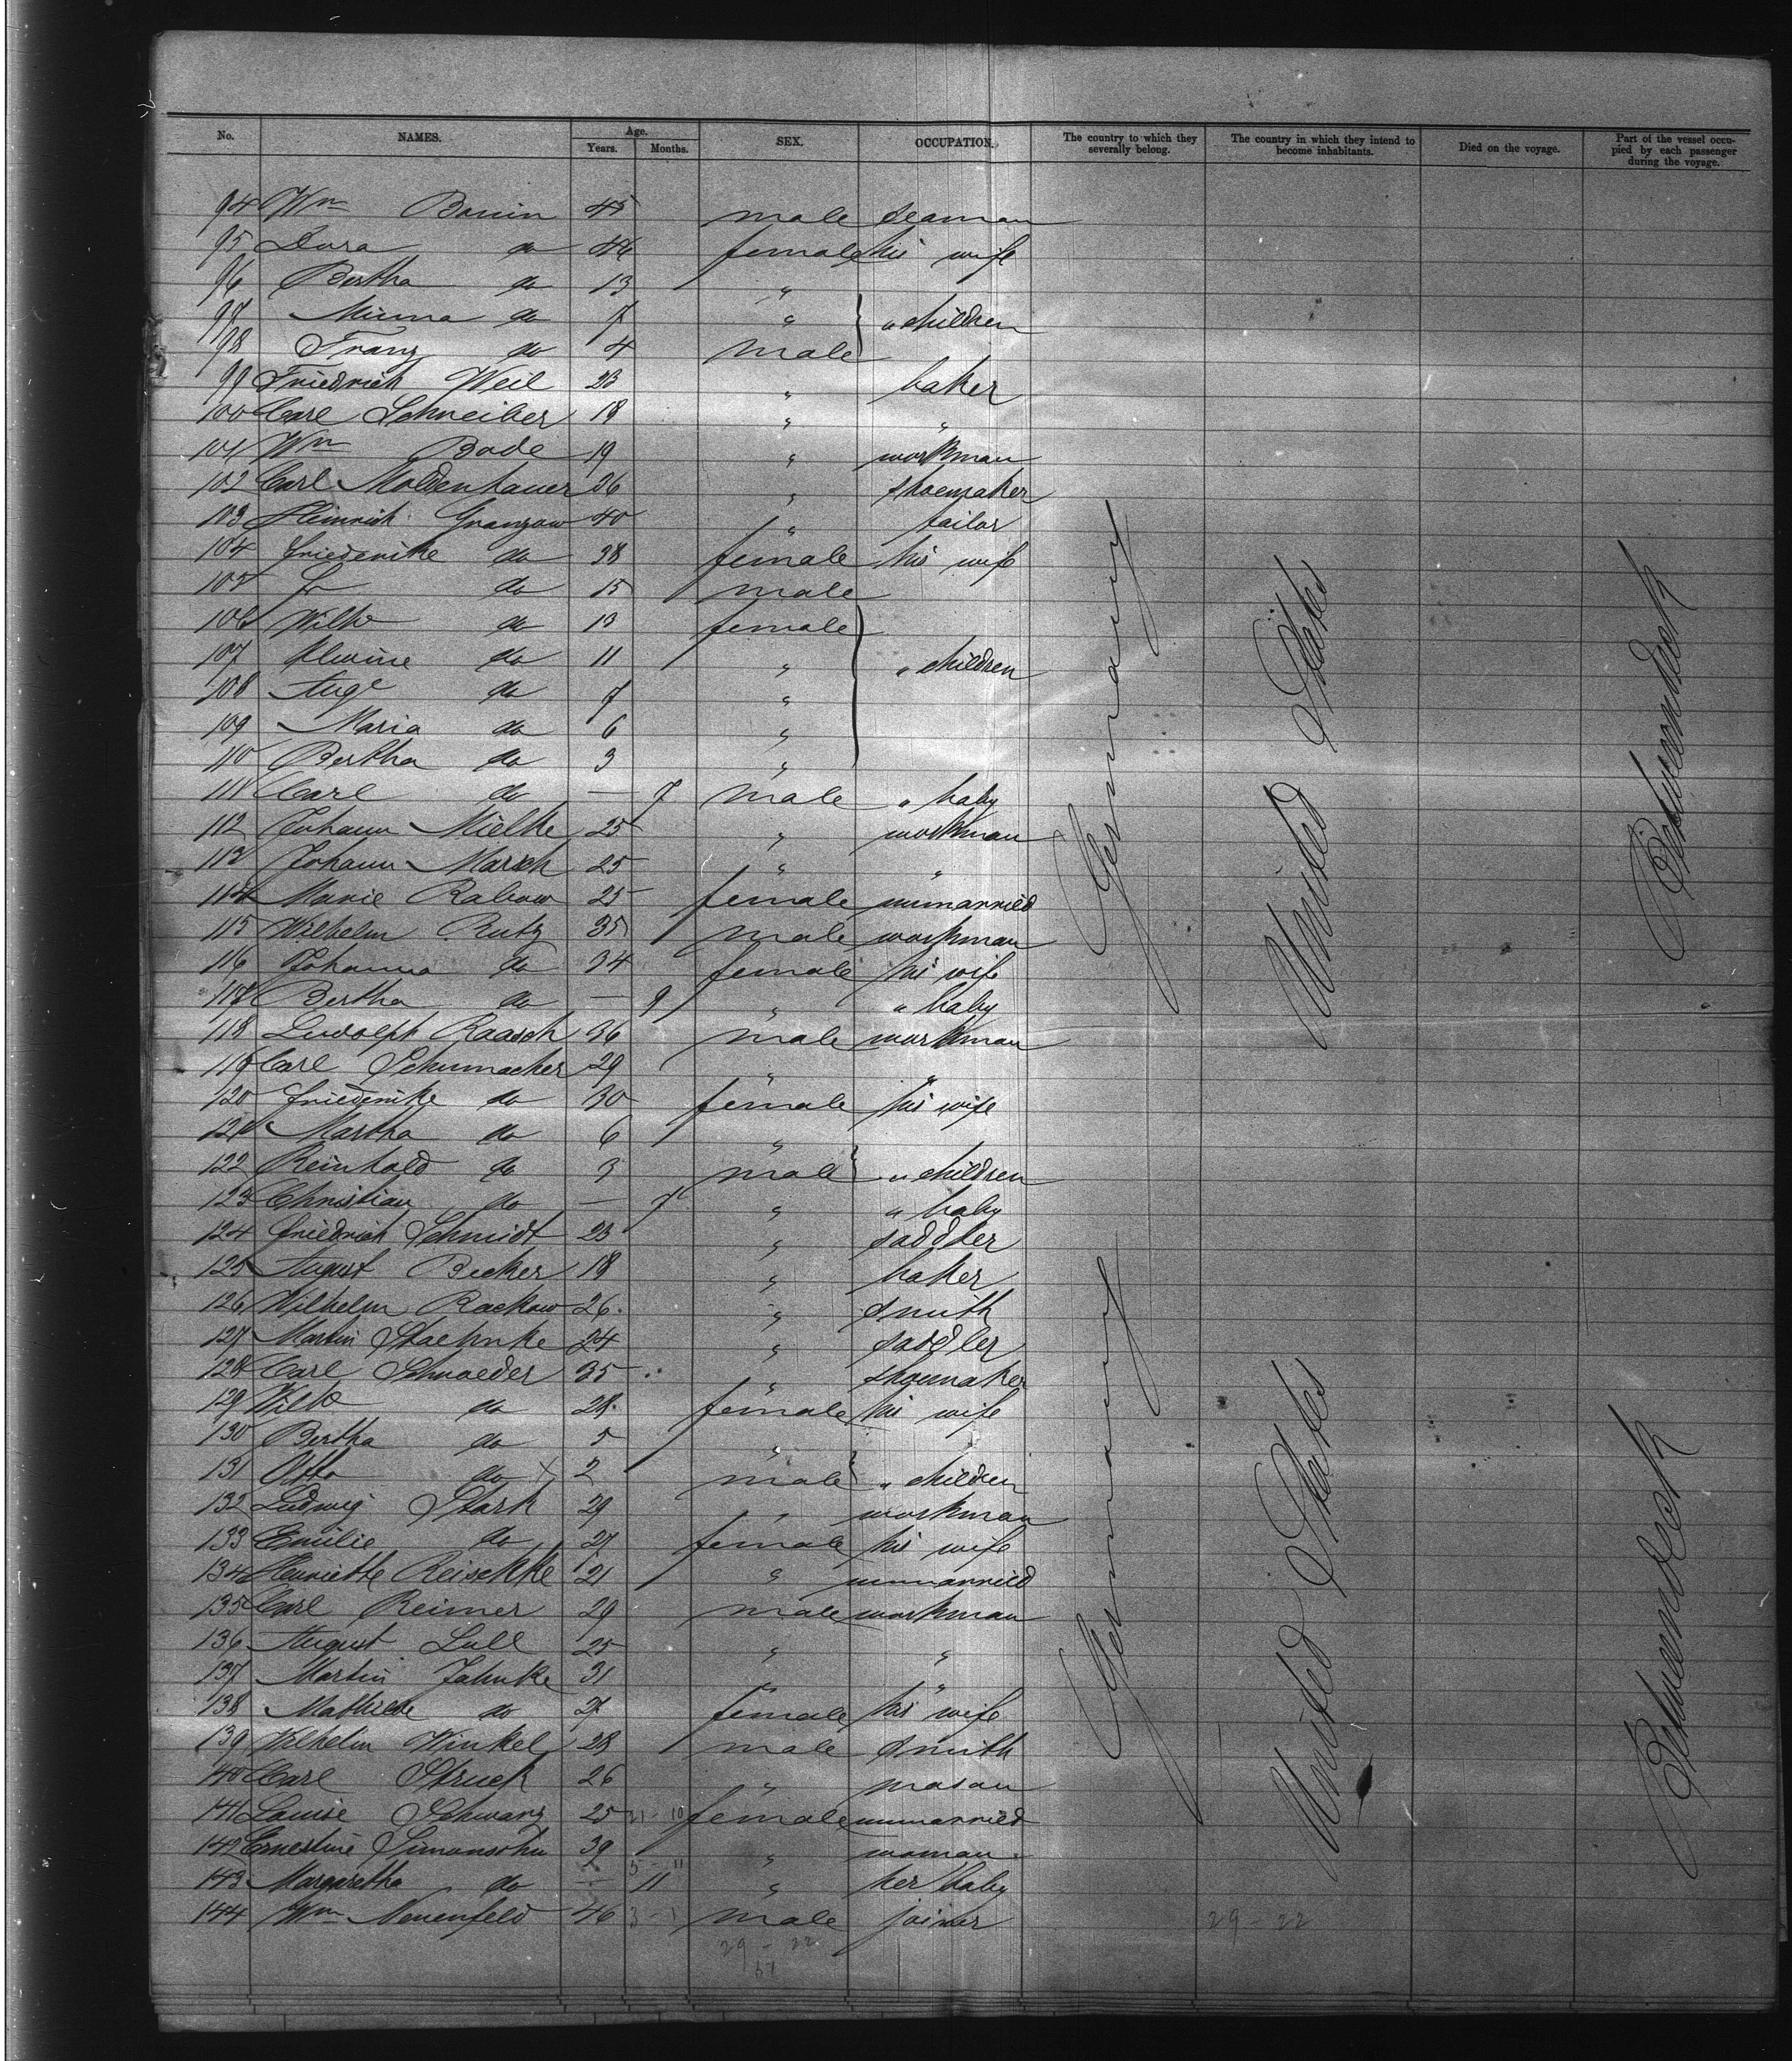 No. NAMES. Age. Years. Months. SEX. OCCUPATION. The country to which they severally belong. The country in which they intend to become inhabitants. Died on the voyage. Part of the vessel occupied by each passenger during the voyage.
94 Wm Bonin 45 male seaman
95 Dora do 46 female his wife
96 Bertha do 13 "
97 Minna do 7 " " children
98 Franz do 4 male
99 Friedrich Weil 23 " baker
100 Carl Schreiber 18 " "
101 Wm Bode 19 " workman
102 Carl Moldenhauer 36 " shoemaker
103 Heinrich Granzow 40 " tailor
104 Friederike do 38 female his wife
105 do 15 male
106 Wilhe do 13 female
107 do 11 " " children
108 Auge do 7 "
109 Maria do 6 "
110 Bertha do 3 "
111 Carl do — 7 male " baby
112 Johann Mielke 25 " workman
113 Johann Marsch 25 " "
114 Marie Rabow 25 female unmarried
115 Wilhelm Rutz 35 male workman
116 Johanna do 34 female his wife
117 Bertha do — 9 " " baby
118 Ludolph Raasch 36 male workman
119 Carl Schumacher 29 " "
120 Friederike do 30 female his wife
121 Martha do 6 "
122 Reinhold do 3 male " children
123 Christian do — 7 " " baby
124 Friedrich Schmidt 23 " saddler
125 August Becker 18 " baker
126 Wilhelm Rackow 26 " smith
127 Martin Staehnke 24 " saddler
128 Carl Schroeder 35 " shoemaker
129 Wilhe do 28 female his wife
130 Bertha do 5 "
131 Otto do 2 male " children
132 Ludwig Stark 29 " workman
133 Emilie do 27 female his wife
134 Henriette Reischke 21 " unmarried
135 Carl Reimer 29 male workman
136 August Lull 25 " "
137 Martin Jahnke 31 " "
138 Mathilde do 27 female his wife
139 Wilhelm Winkel 28 male smith
140 Carl Struck 26 " mason
141 Louise Schwarz 25 female unmarried
142 Ernestine Simonsohn 39 " woman
143 Margaretha do — 11 " her baby
144 Wm Neuenfeld 46 male joiner
29 - 22
29 - 22
51
Germany
United States
Betweendeck
Germany
United States
Betweendeck